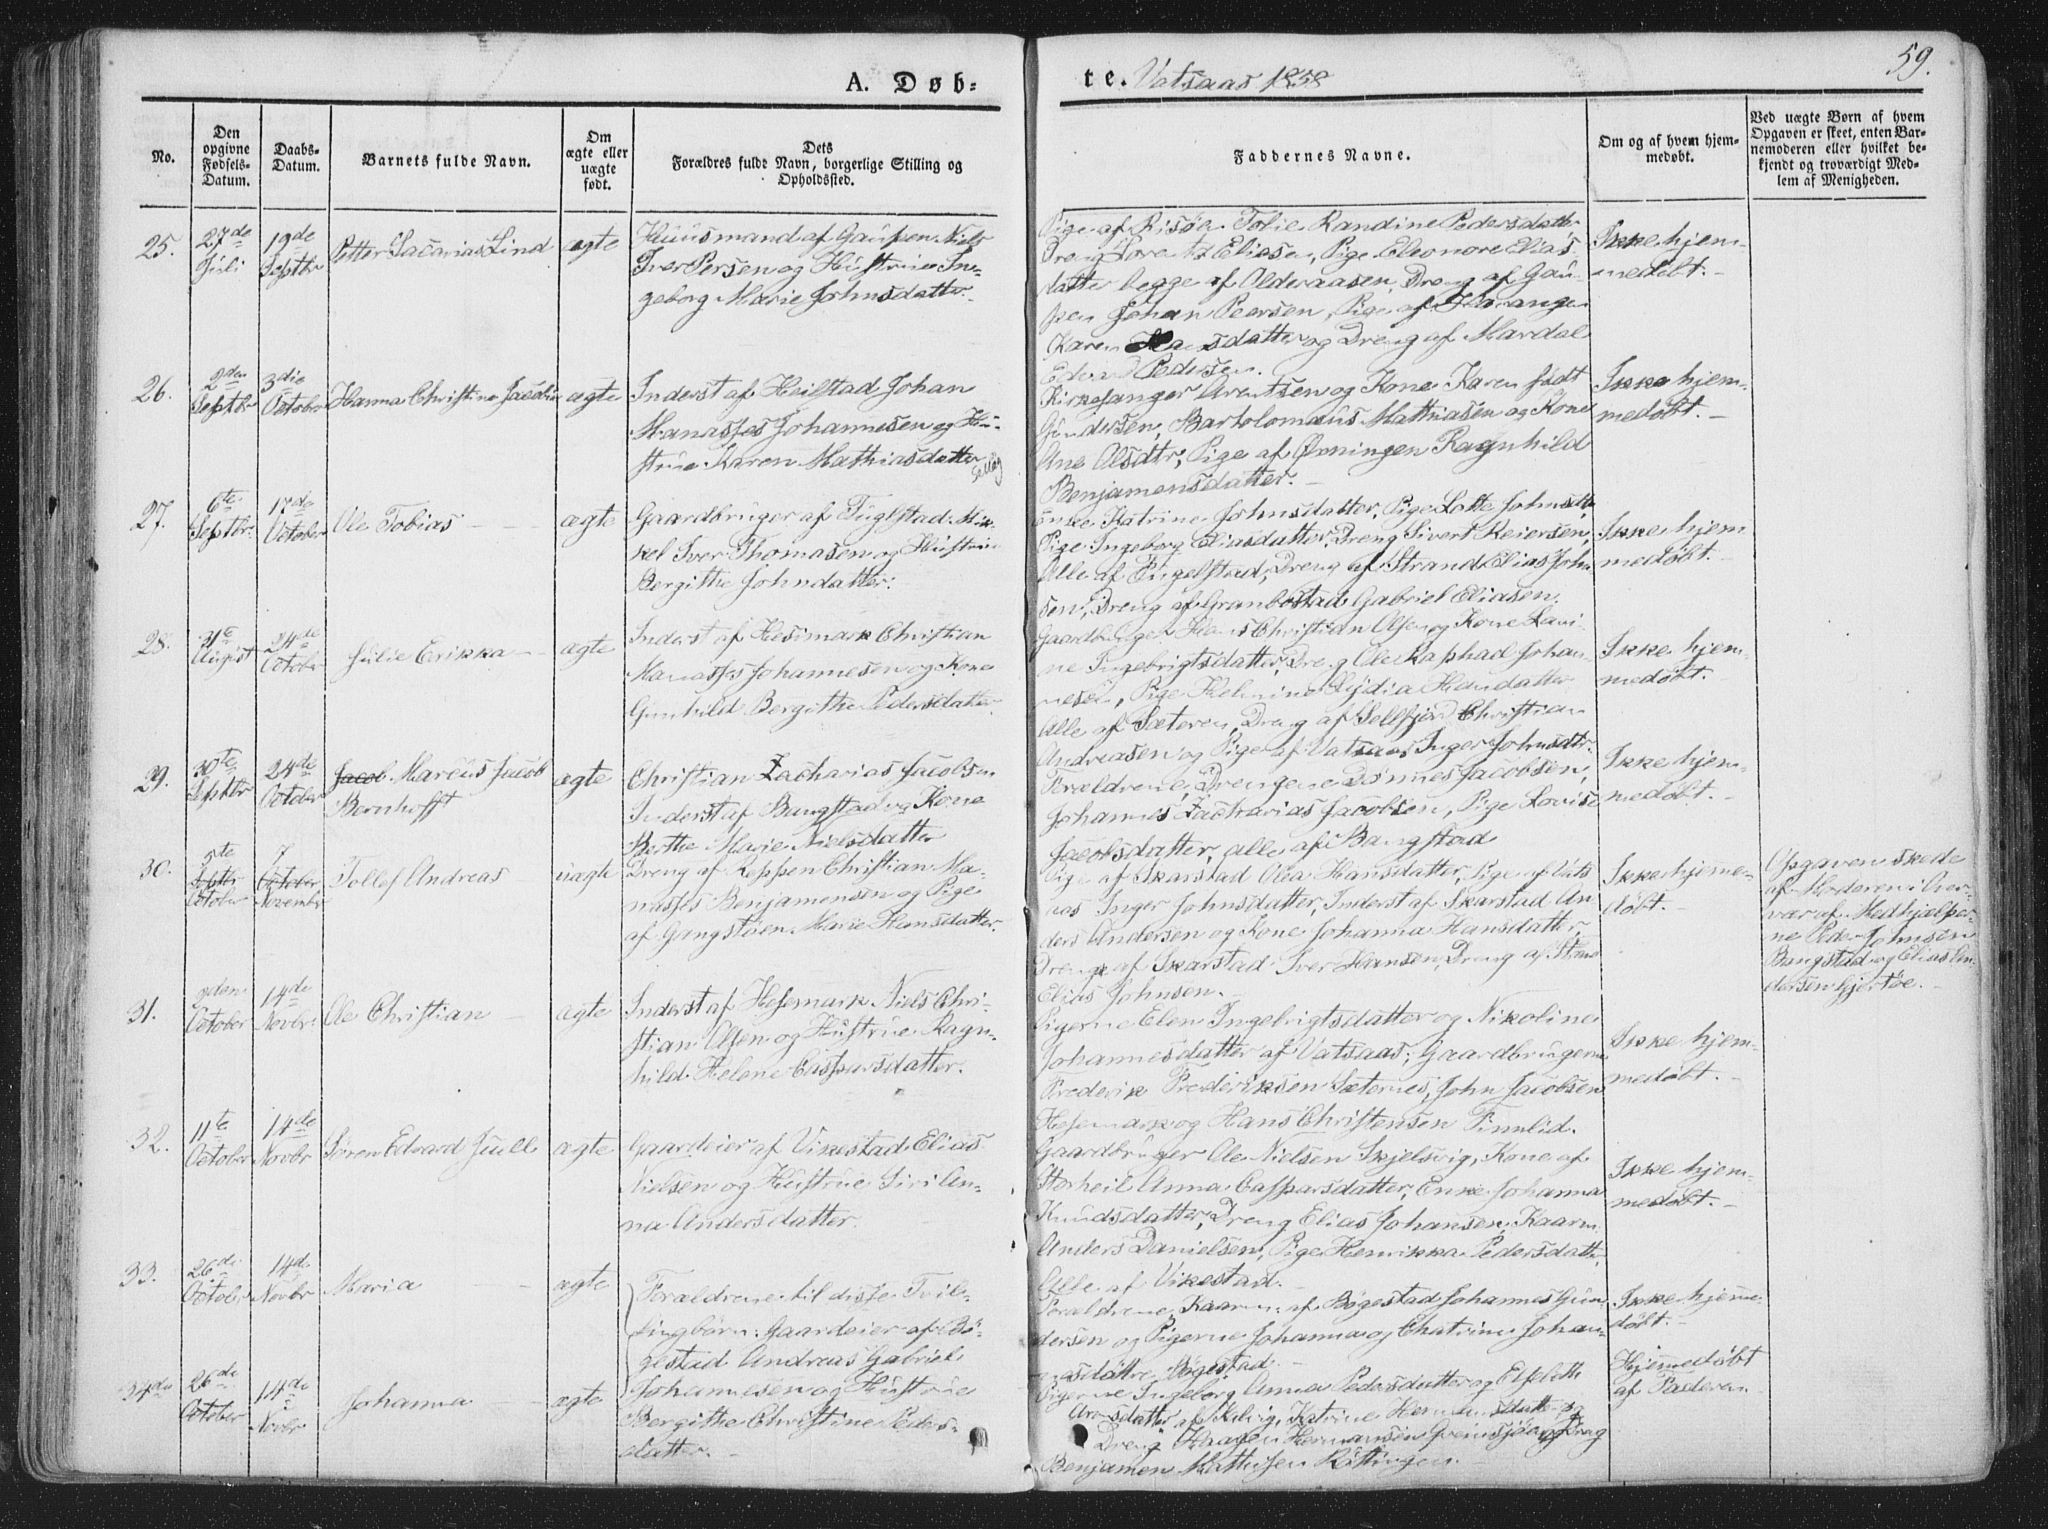 59.
A. Døb-
te. Vatsaas 1858
No.
Den opgivne Fødsels-Datum.
Daabs-Datum.
Barnets fulde Navn.
Om ægte eller uægte født.
Dets
Forældres fulde Navn, borgerlige Stilling og
Opholdssted.
Faddernes Navne.
Om og af hvem hjem-
medøbt.
Ved uægte Børn af hvem
Opgaven er skeet, enten Bar-
nemoderen eller hvilket be-
kjendt og troværdigt Med-
lem af Menigheden.
25.
27de Juli
19de Septbr
Petter Sacarias Lind
ægte
Huusmand af Gaupen Niels
Iver Persen og Hustrue In-
geborg Marie Johnsdatter.
Pige af Risøen Tolie Randine Pedersdatter
Dreng Lorents Eliasen, Pige Eleonore Elias
datter begge af Olderaasen, Dreng af Gau-
pen Johan Peersen, Pige af
Karen Hansdatter og Dreng af Mardal
Edvard Pedersen.
Ikke hjem-
medøbt.
26.
2den Septbr
3die October
Hanna Christine Jacobine
ægte
Inderst af Heilstad Johan
Manasses Johannesen og Hu-
strue Karen Mathiasdatter
Kirkesanger Arentsen og Kone Karen født
Gundersen, Bartolomæus Mathiasen og Kone
Ane Olsdtr, Pige af Øxningen Ragnhild
Benjamensdatter.
Ikke hjem-
medøbt.
27.
6te Septbr.
17de October
Ole Tobias
ægte
Gaardbruger af Fuglstad Mik-
kel Iver Thomasen og Hustrue
Bergithe Johndatter.
Enke Katrine Johnsdatter, Pige Lotte Johnsdtr,
Pige Ingeborg Eliasdatter, Dreng Sivert Reiersen,
Alle af Engelstad, Dreng af Strand Elias John
sen, Dreng af Granbostad Gabriel Eliasen.
Ikke hjem
medøbt.
28.
31te August
24de October
Julie Erikka
ægte
Inderst af Hesimark Christian
Manasses Johannesen og Kone
Gunhild Bergithe Pedersdatter
Gaardbruger Hans Christian Olsen og Kone Lavi-
ne Ingebrigtsdatter, Dreng Ole Raphael Johan-
nesen, Pige Lydia Hansdatter
Alle af Sæteren, Dreng af Sellfjord Christian
Andreasen og Pige af Vatsaas Inger Johnsdtr.
Ikke hjem-
medøbt.
29.
30te Septbr
24de October
Jacob Marcus Jacob
Bernhofft
ægte
Christian Zacharias Jacobsen
Inderst af Bangstad og Kone
Berthe Marie Nielsdatter
Forældrene, Drengene Dønnes Jacobsen,
Johannes Zacharias Jacobsen, Pige Lovise
Jacobsdatter, alle af Bangstad
Ikke hjem-
medøbt.
30.
5te Septbr October
7 October Novembr
Tollef Andreas
uægte
Dreng af Reppen Christian Ma-
nasses Benjamensen og Pige
af Gangstøen Marie Hansdatter.
Pige af Skarstad Olea Hansdatter, Pige af Vats
aas Inger Johnsdatter, Inderst af Skarstad An
ders Andersen og Kone Johanna Hansdatter,
Dreng af Skarstad Iver Hansen, Dreng af Strand
Elias Johnsen.
Ikke hjemme-
døbt.
Opgaven skede
af Moderen i Over-
vær af Medhjælper-
ne Peder Johnsen
Bangstad og Elias An-
dersen hjertøe.
31.
2den October
14de Novbr.
Ole Christian
ægte
Inderst af Hesemark Niels Chri-
stian Olsen og Hustrue Ragn-
hild Helene Caspersdatter.
Pigerne Elen Ingebrigtsdatter og Nikoline
Johannesdatter af Vatsaas; Gaardbrugerne
Frederik Frederiksen Sæternes, John Jacobsen
Hesemark og Hans Christensen Finnlid.
Ikke hjem-
medøbt.
32.
11te October
14de Novbr
Søren Edvard Juell
ægte
Gaardeier af Vikestad Elias
Nielsen og Hustrue Siri An-
na Andersdatter.
Gaardbruger Ole Nielsen Skjelsvig, Kone af
Storheil Anna Caspersdatter, Enke Johanna
Knudsdatter, Dreng Elias Johansen, Kaarm.
Anders Danielsen, Pige Henrikka Pedersdatte,
Alle af Vikestad.
Ikke hjem-
medøbt.
33.
26de October
14de Novbr
Maria
ægte
Forældrene til disse Tvil-
lingbørn: Gaardeier af Bø-
gestad Andreas Gabriel
Johannesen og Hustrue
Bergithe Christine Peders-
datter.
Forældrene, Kaarm. af Bøgestad Johannes Gun-
dersen og Pigerne Johanna og Chatrine Johan-
nesdøttre Bøgestad.
Ikke hjemme-
døbt.
34de
26de October
14de Novbr
Johanna
ægte
Pigerne Ingeborg Anna Pedersdatter og Elsebeth
Aronsdatter af Helvig, Katrine Hermansdatter og
Dreng Haagen Hermansen Grensjøen og Dreng
Benjamen Mathisen Røttingen.
Hjemmedøbt
af Faderen